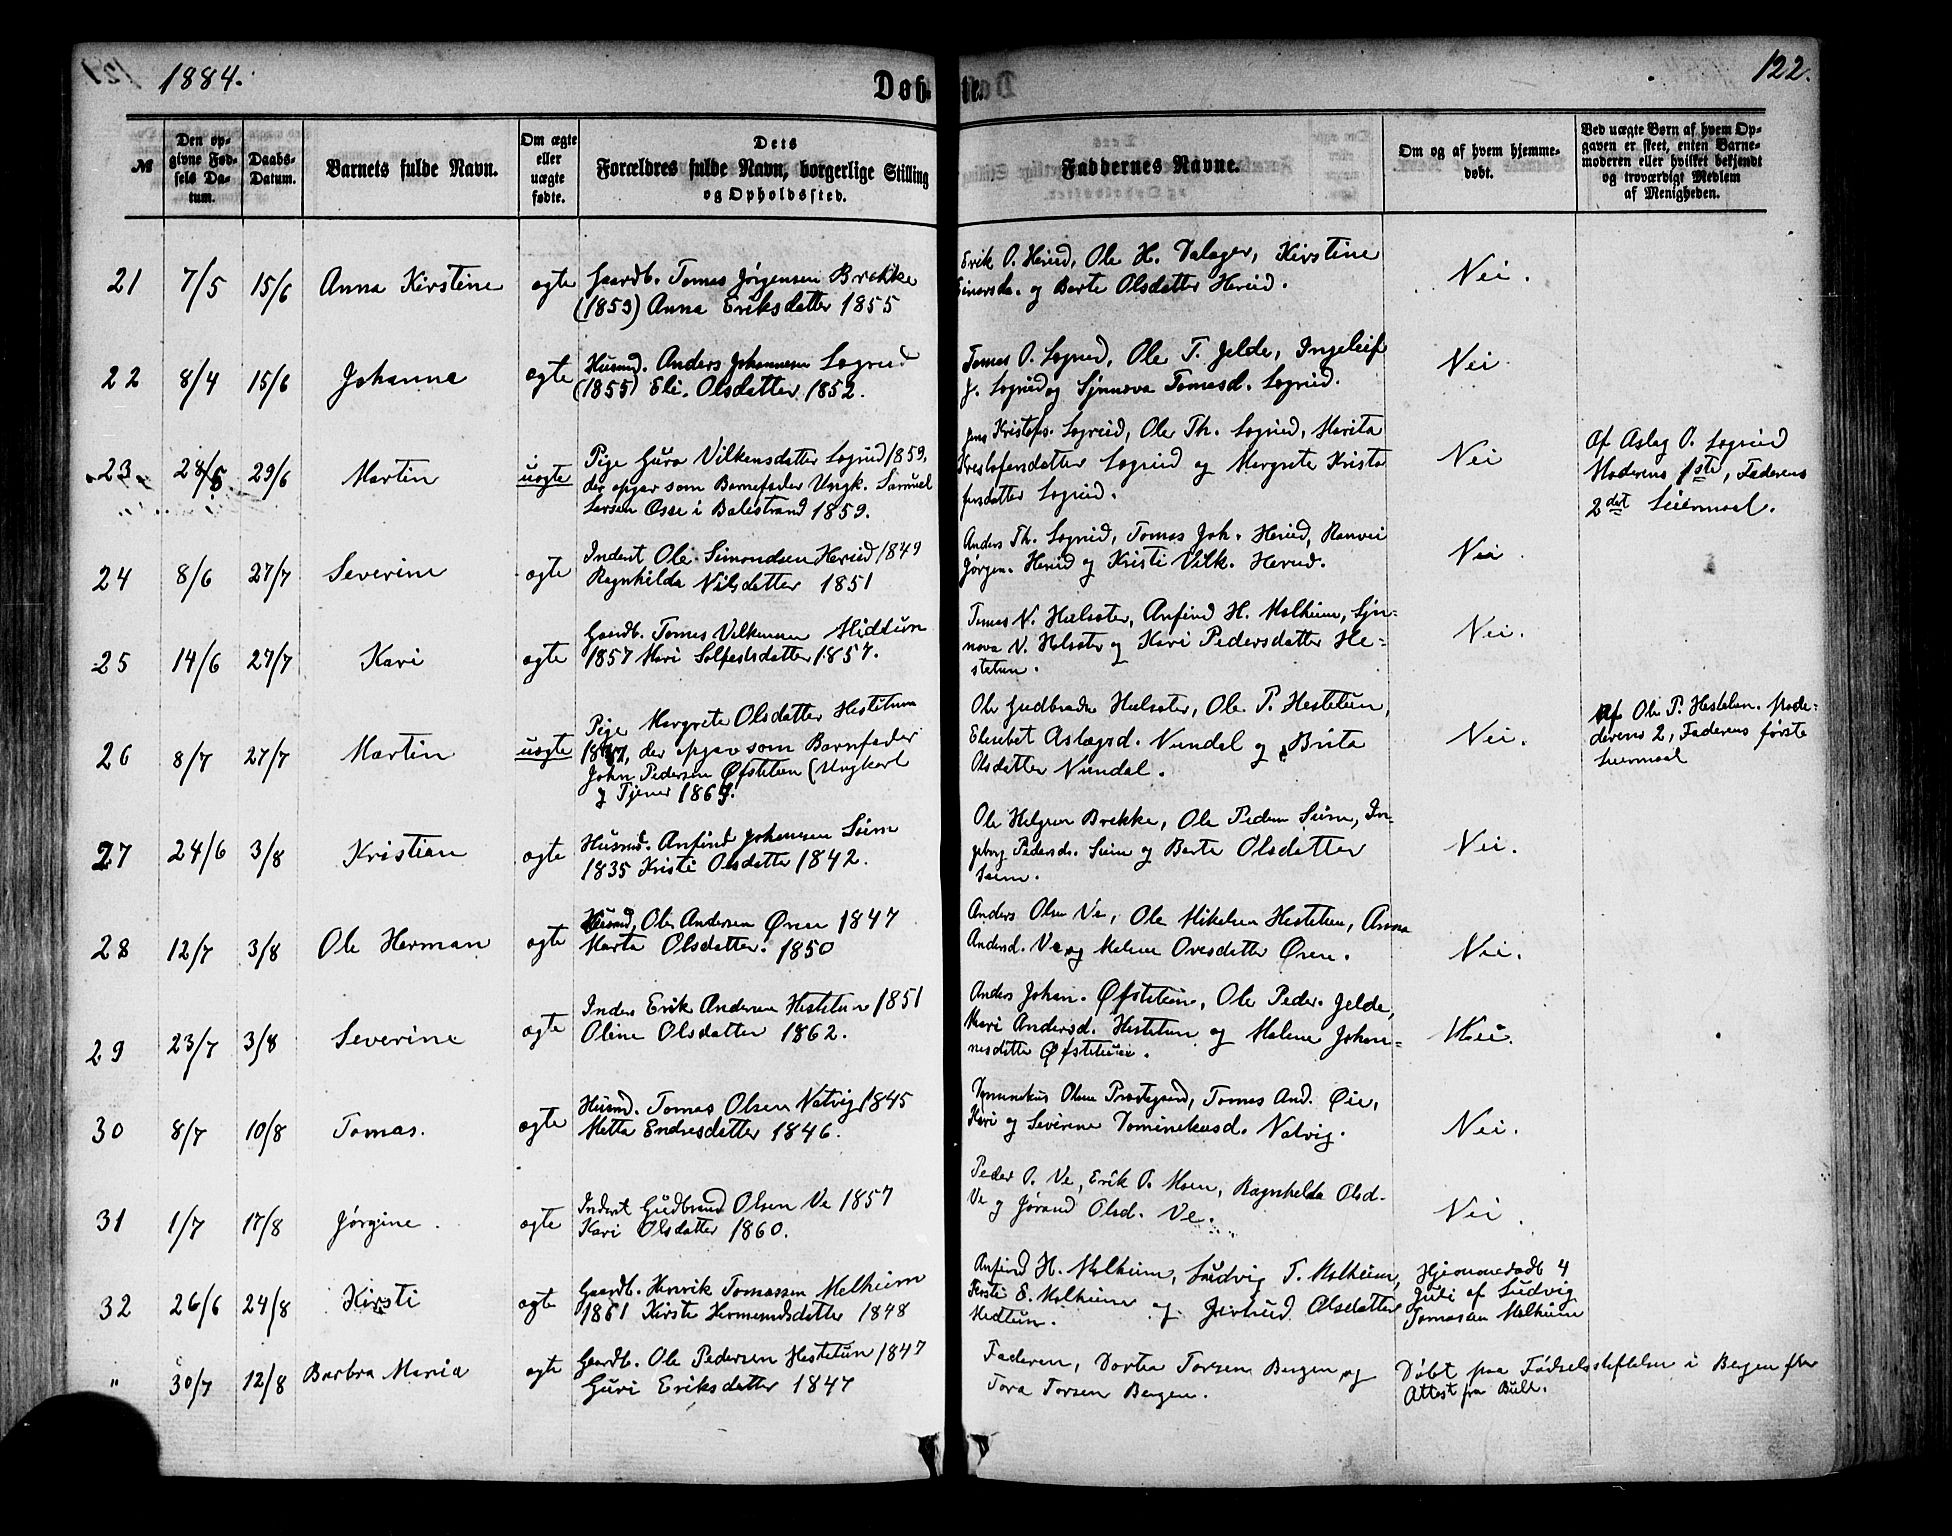 1884.
Døbte.
122.
№
Den opgivne Fødsels Datum.
Daabs-Datum.
Barnets fulde Navn.
Om ægte eller uægte fødte.
Dets Forældres fulde Navn, borgerlige Stilling og Opholdssted.
Faddernes Navne.
Om og af hvem hjemmedøbt.
Ved uægte Børn af hvem Opgaven er skeet, enten Barnemoderen eller hvilket bekjendt og troværdigt Medlem af Menigheden.
21 7/5 15/6 Anna Kirstine ægte Gaardb. Tomas Jørgensen Brekke
(1859) Anna Eriksdatter 1855
Erik O. Hæreid, Ole H. Dalager, Kirstine
Einarsda. og Barte Olsdatter Hæreid.
Nei.
22 8/4 15/6 Johanne ægte Husmd. Anders Johannesen Lægreid
(1855) Eli Olsdatter 1852.
Tomas O. Lægreid, Ole T. Jelde, Ingeleif
J. Lægreid og Synnøva Tomasd. Lægreid.
Nei.
23 28/5 29/6 Martin uægte Pige Guro Vilkensdatter Lægreid 1859.
der opgav som Barnefader Ungk. Samuel
Larsen Esse i Balestrand 1859.
Jens Kristofs. Lægreid, Ole Th. Lægreid, Marita
Kristofersdatter Lægreid og Margrete Kristo
fersdatter Lægreid.
Nei
Af Aslag O. Lægreid
Moderens 1ste, Faderens
2det Leiermaal.
24 8/6 27/7 Severine ægte Inderst Ole Simondsen Hæreid 1849
Ragnhilda Nilsdatter 1851
Anders Th. Lægreid, Tomas Joh. Hæreid, Ranvei
Jørgen. Hæreid og Kristi Vilk. Hæreid.
Nei.
25 14/6 27/7 Kari ægte Gaardb. Tomas Vilkensen Midtun
1857 Mari Solfestsdatter 1857.
Tomas N. Hælsæter, Anfind H. Melheim, Syn-
nøva N. Helsæter og Kari Pedersdatter He-
stetun.
Nei.
26 8/7 27/7 Martin uægte Pige Margrete Olsdatter Hestetun
der opgav som Barnfader
John Pedersen Øfstetun (Ungkarl
og Tjener 1869.
Ole Gudbrands Hælsæter, Ole P. Hestetun,
Elisebet Aslagsd. Nundal og Brita
Olsdatter Nundal.
Nei.
Af Ole P. Hestetun. Mode-
derens 2, Faderens første
Leiermaal
27 24/6 3/8 Kristian ægte Husmd. Anfind Johansen Seim
1835 Kristi Olsdatter 1842.
Ole Helgesen Brekke, Ole Peders Seim, In-
geborg Pedersd. Seim og Barte Olsdatter
Seim.
Nei.
28 12/7 3/8 Ole Herman ægte Husmd, Ole Andersen Øren 1847
Marta Olsdatter. 1850
Anders Olsen Ve, Ole Mikelsen Hestetun, Anna
Andersd. Ve og Malene Ovesdatter Øren.
Nei.
29 23/7 3/8 Severine ægte Inders Erik Andersen Hestetun 1851
Oline Olsdatter 1862.
Anders Johan. Øfstetun, Ole Peder. Jelde,
Mari Andersd. Hestetun og Malene Johan-
nesdatter Øfstetun.
Nei.
30 8/7 10/8 Tomas. ægte Husmd. Tomas Olsen Natvig 1845
Metta Endresdatter 1846.
Domenikus Olsen Prestegaard, Tomas And. Øie,
Kari og Severine Dominekusd. Natvig.
Nei.
31 1/7 17/8 Jørgine. ægte Inderst Gudbrand Olsen Ve 1857
Kari Olsdatter 1860.
Peder O. Ve, Erik O. Moen, Ragnhilda Olsd-
Ve og Jørand Olsd. Ve.
Nei.
32 26/6 24/8 Kirsti ægte Gaardb. Henrik Tomassen Melheim
1861 Kirsti Hermundsdatter 1848
Anfind H. Melheim, Ludvig T. Melheim,
Kersti E. Melheim og Jertrud Olsdatter
Midtun.
Hjemmedøbt 4
Juli af Ludvig
Tomasen Melheim
" 30/7 12/8 Barbra Maria ægte Gaardb. Ole Pedersen Hestetun 1847
Guri Eriksdatter 1847
Faderen, Dortea Torsen Bergen og
Tora Torsen Bergen.
Døbt paa Fødselsstiftelsen i Bergen efter
Attest fra Bull.